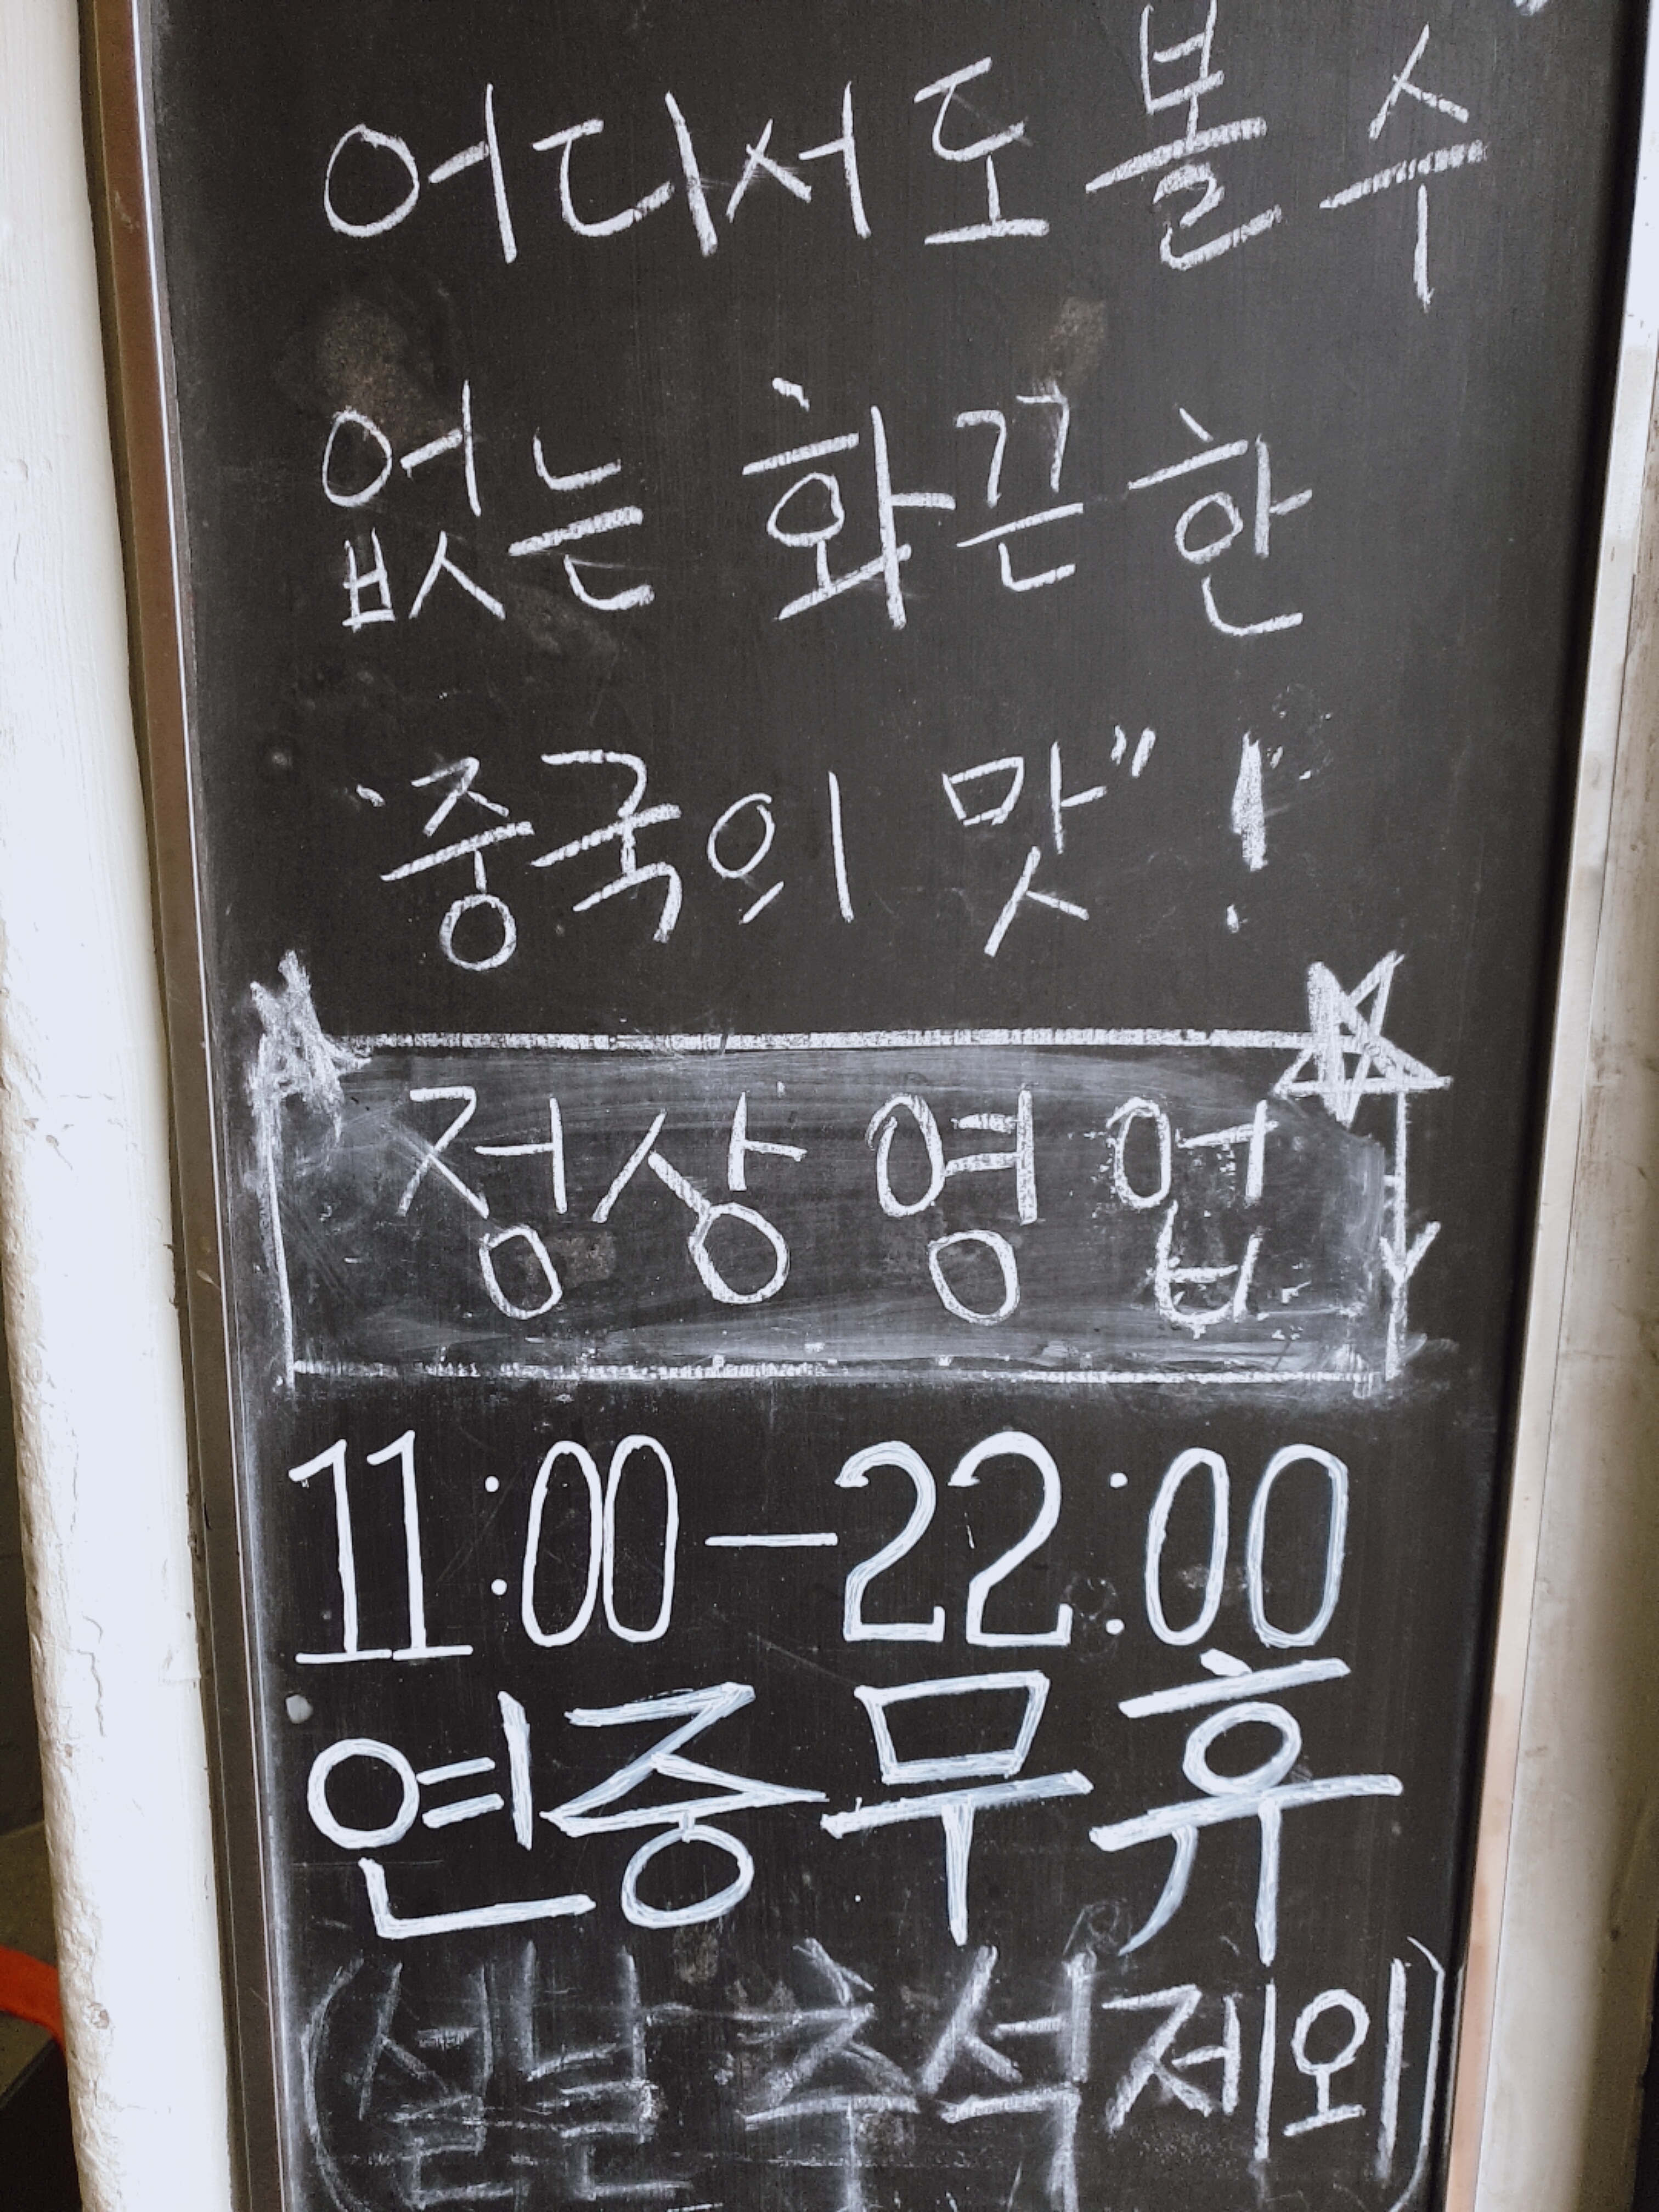 어디서도 볼 수
없는 화끈한
"중국의 맛"!
정상영업
11:00-22:00
연중무휴
(설날 추석제외)